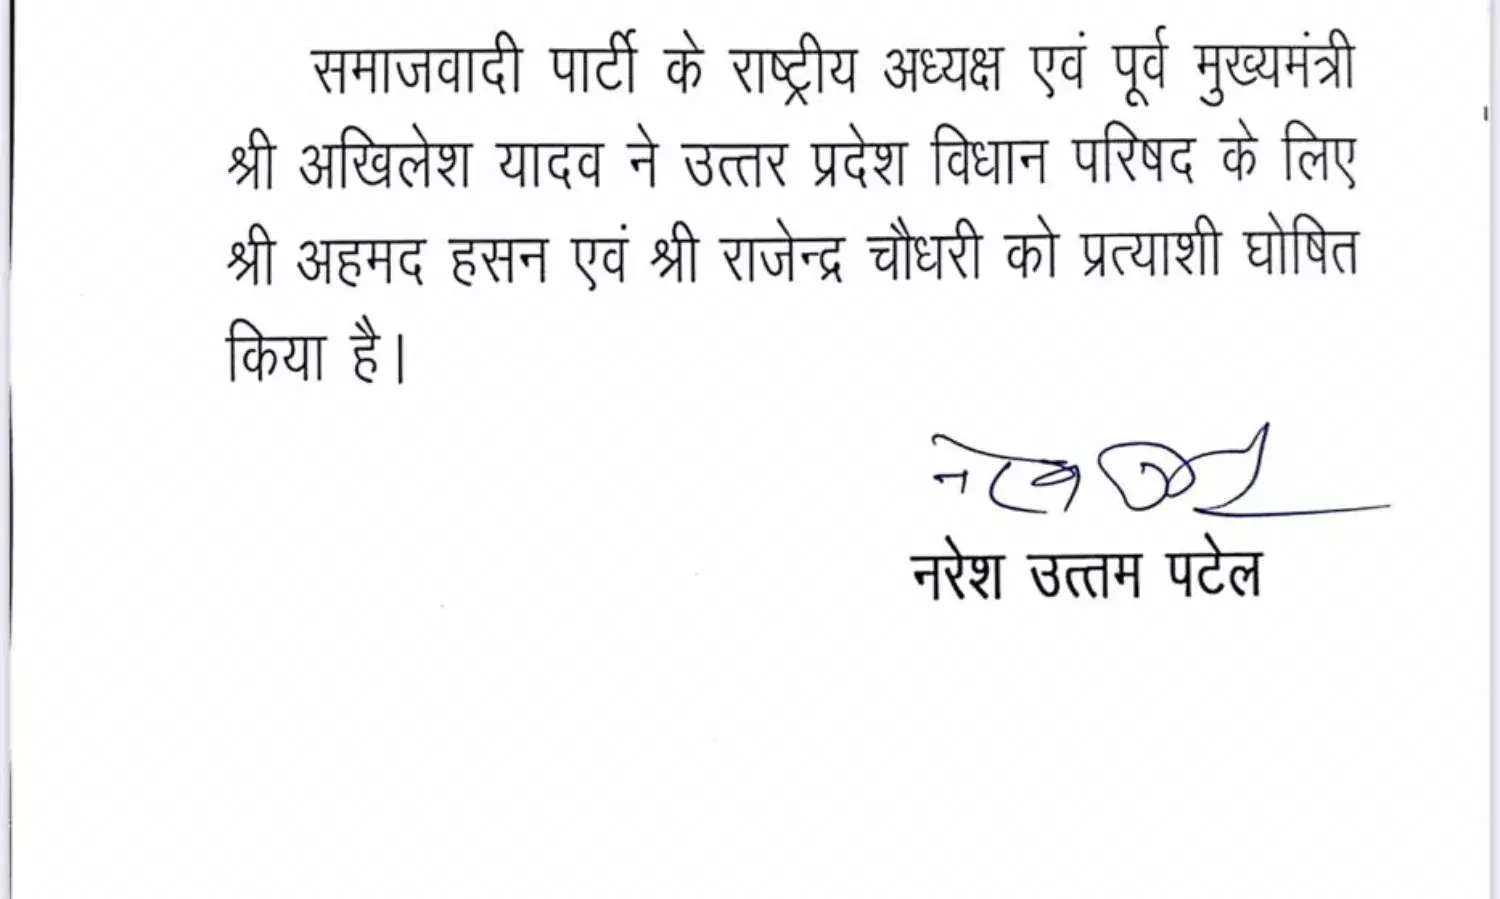 समाजवादी पार्टी के राष्ट्रीय अध्यक्ष एवं पूर्व मुख्यमंत्री
श्री अखिलेश यादव ने उत्तर प्रदेश विधान परिषद के लिए
श्री अहमद हसन एवं श्री राजेन्द्र चौधरी को प्रत्याशी घोषित
किया है।
नरेश उत्तम पटेल